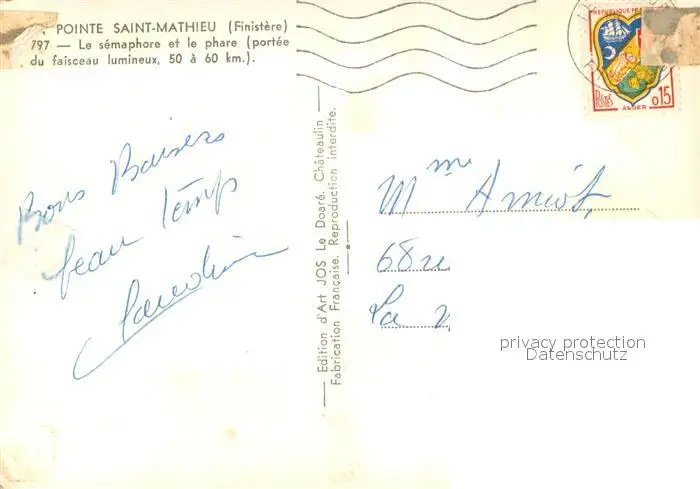 POINTE SAINT-MATHIEU (Finistère)
797 — Le sémaphore et le phare (portée
du faisceau lumineux, 50 à 60 km.).
Bons Baisers
beau temps
Edition d'Art JOS Le Doaré, Châteaulin
Fabrication Française. Reproduction interdite.
REPUBLIQUE FRA
POSTES
ALGER
0,15
Mme Amiot,
68 
La
privacy protection
Datenschutz